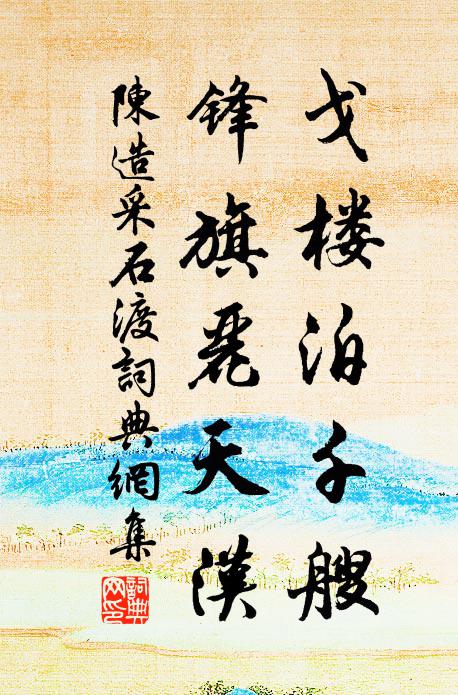 戈楼泊千艘
锋旗麗天漢
陳造采石渡詞典網集